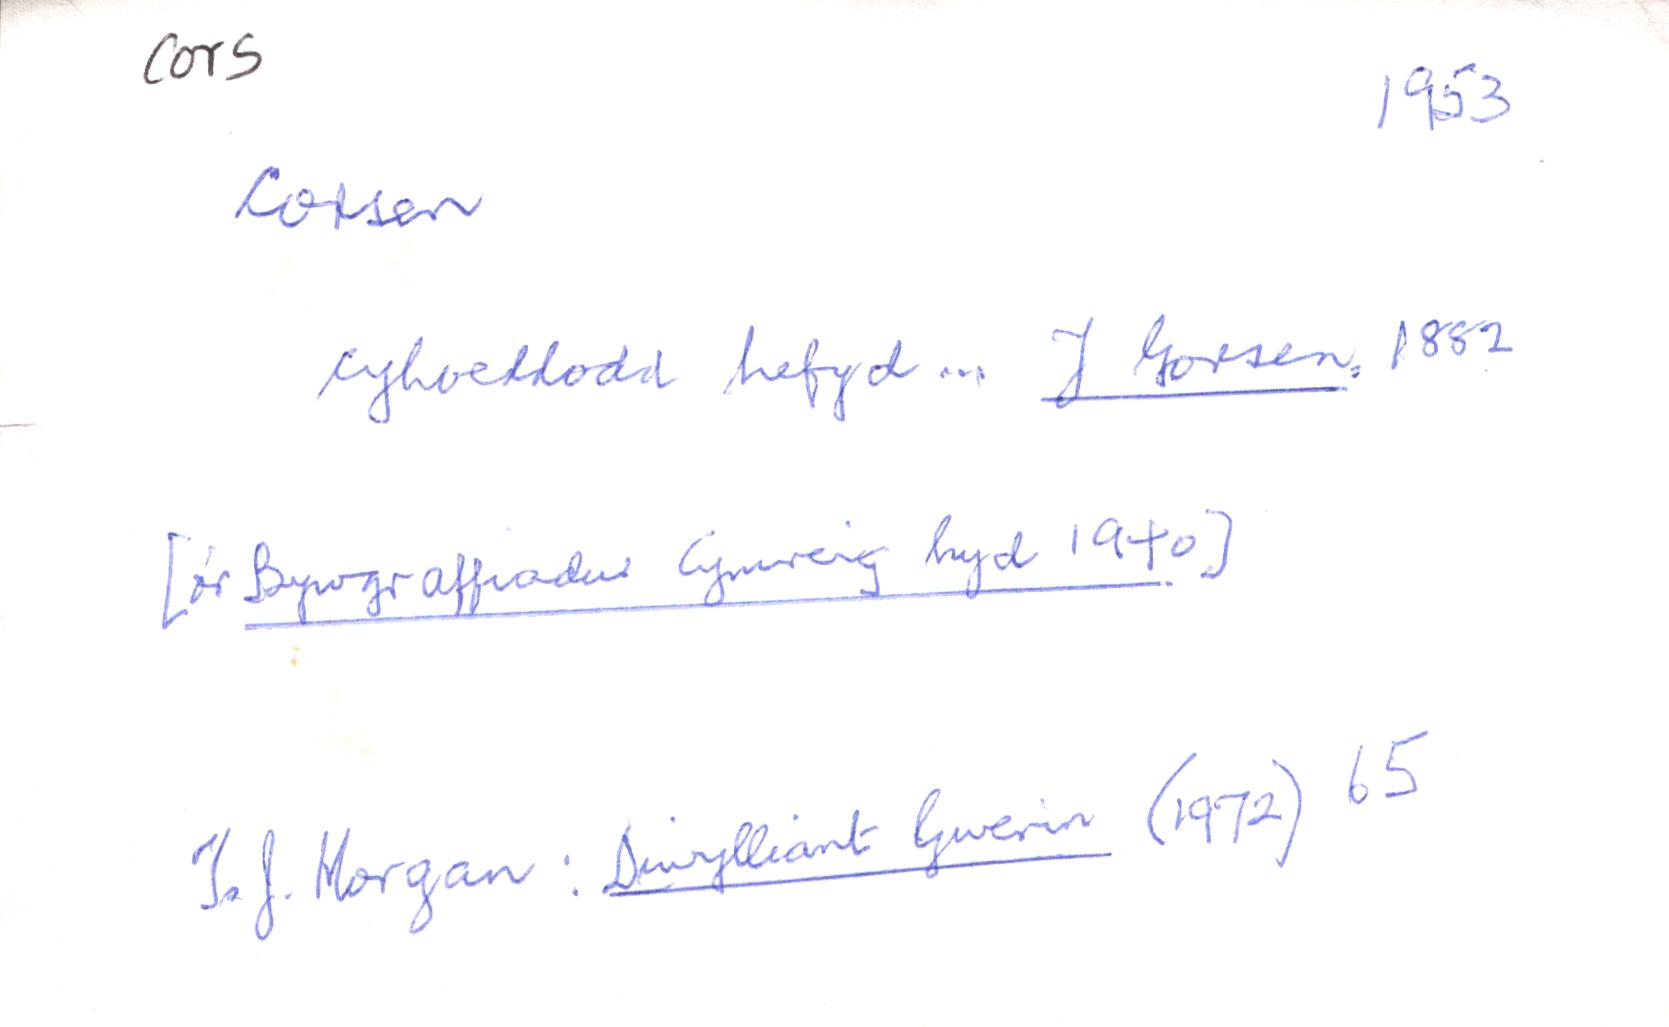 cors
1953
Corsen
cyhoeddodd hefyd... Y Gorsen, 1882
[o'r Bywgraffiadur Cymreig hyd 1940]
T. J. Morgan : Diwylliant Gwerin (1972) 65